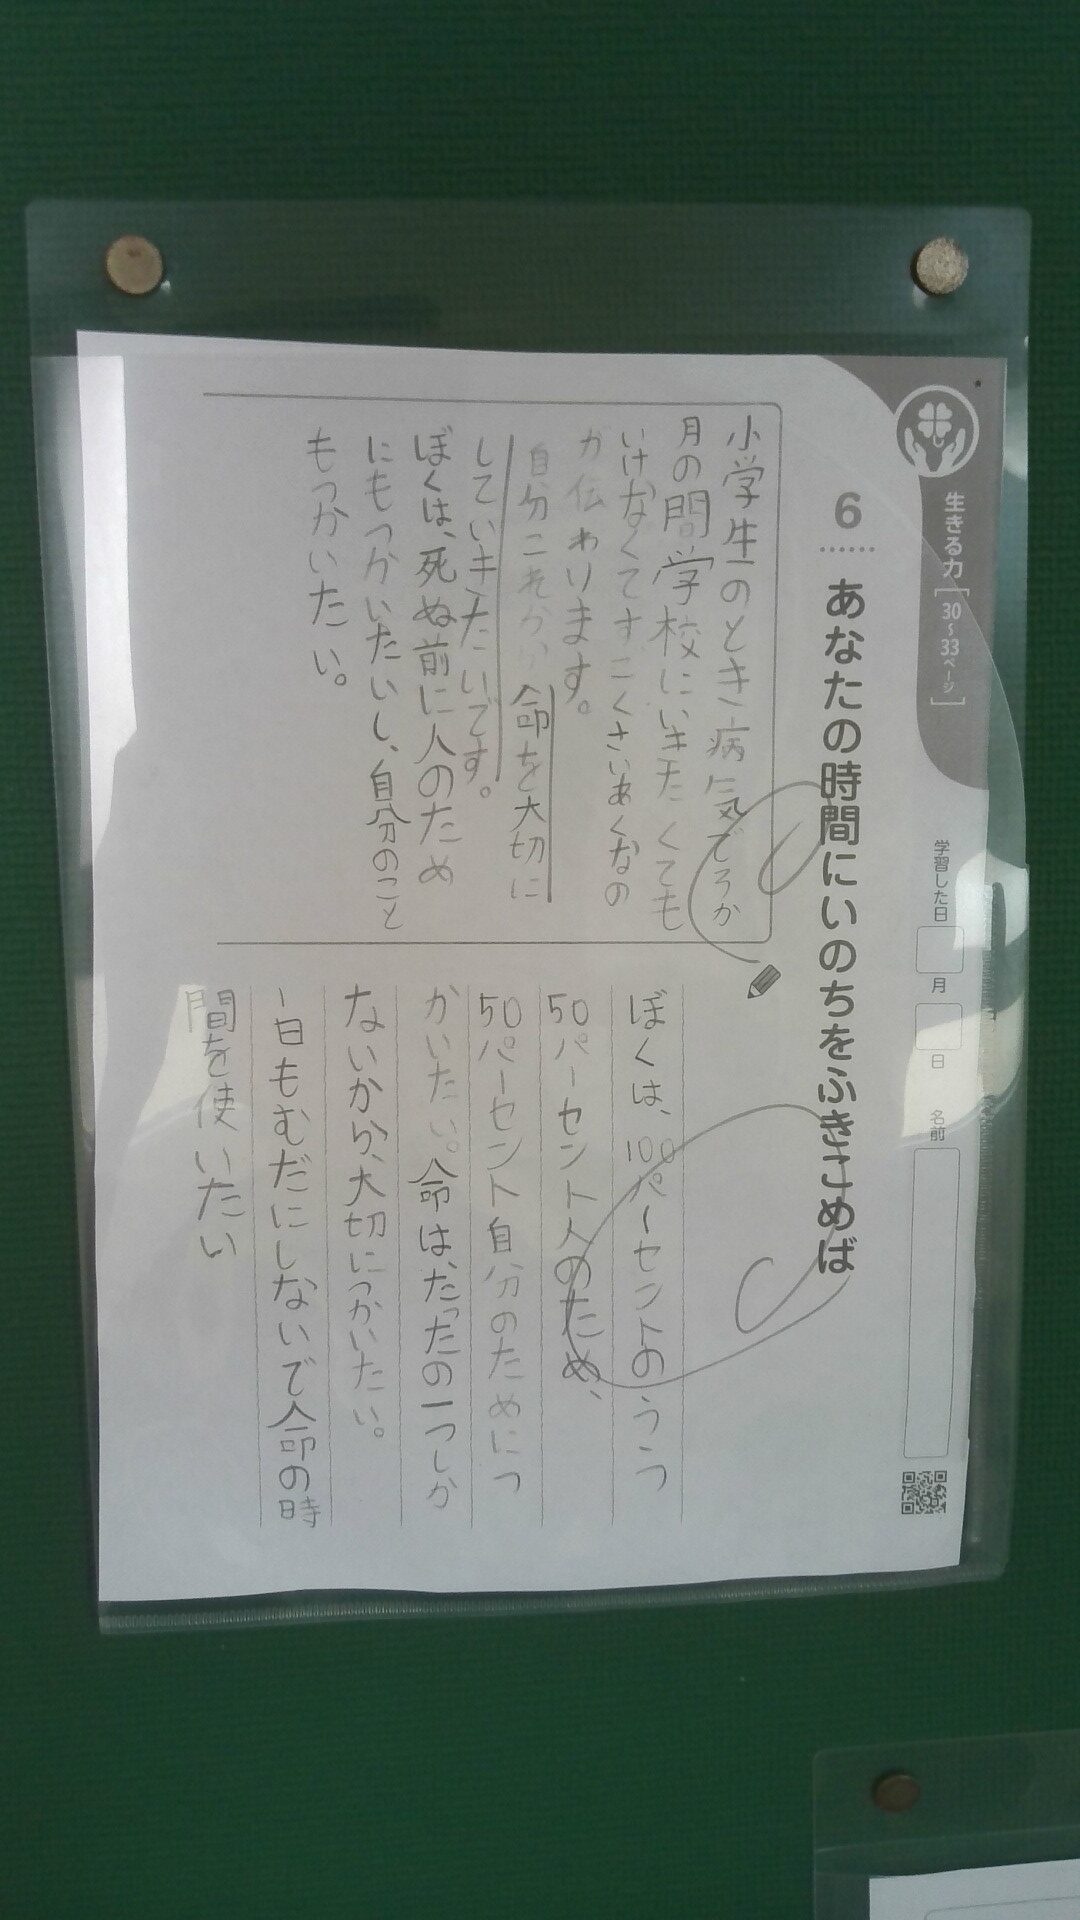 生きる力［30～33ページ］
学習した日 月 日 名前
6 あなたの時間にいのちをふきこめば
小学生のとき病気でろっか
月の間学校にいきたくても
いけなくてすごくさいあくなの
が伝わります。
自分これから命を大切に
していきたいです。
ぼくは、死ぬ前に人のため
にもつかいたいし、自分のこと
もつかいたい。
ぼくは、100パーセントのうつ
50パーセント人のため、
50パーセント自分のためにつ
かいたい。命は、たったの一つしか
ないから、大切につかいたい。
一日もむだにしないで命の時
間を使いたい